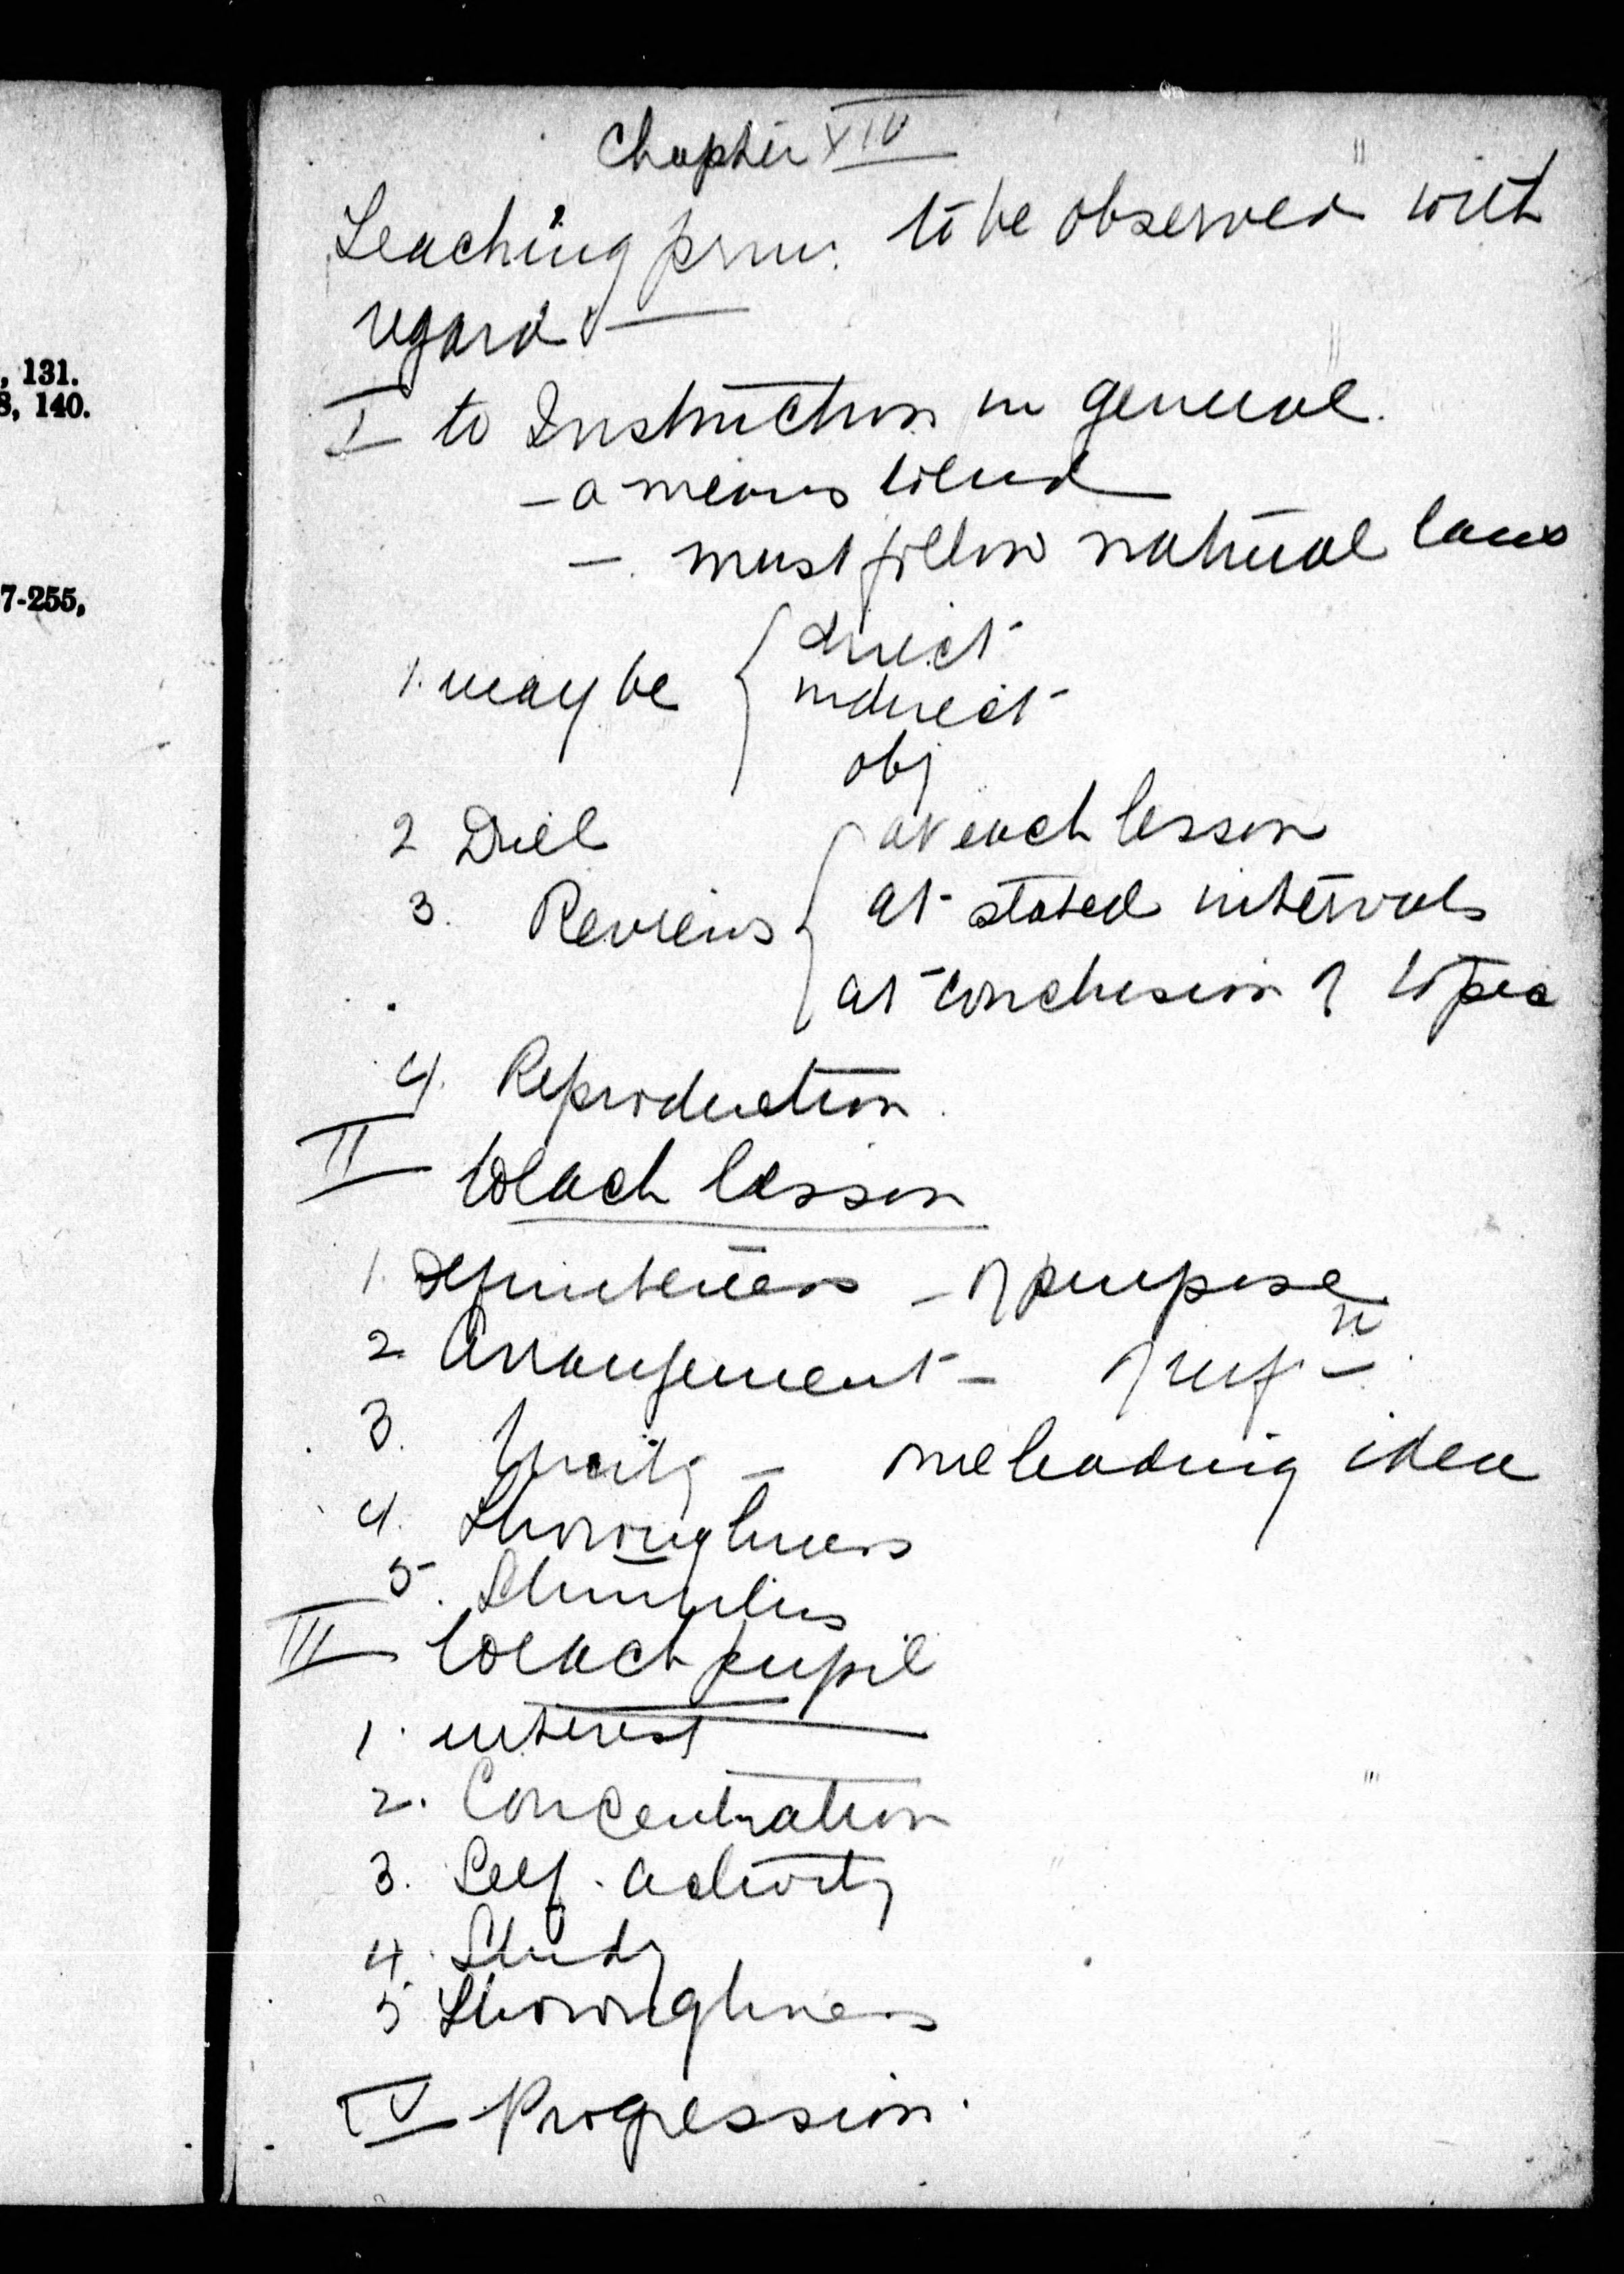 , 131.
8, 140.
7-255,
Chapter XIV
Teaching prin. to be observed with
regard —
I to Instruction in general.
- a means to end
- must follow natural laws
1. may be { direct
indirect
obj
2 Drill
3. Reviews { at each lesson
at stated intervals
at conclusion of topic
4. Reproduction.
II to each lesson
1. Definiteness - of purpose
2 Arrangement -
3. Unity - one leading idea
4. Thoroughness
5. Stimulus
III to each pupil
1. interest
2. Concentration
3. Self-activity
4. Study
5 Thoroughness
IV Progression.